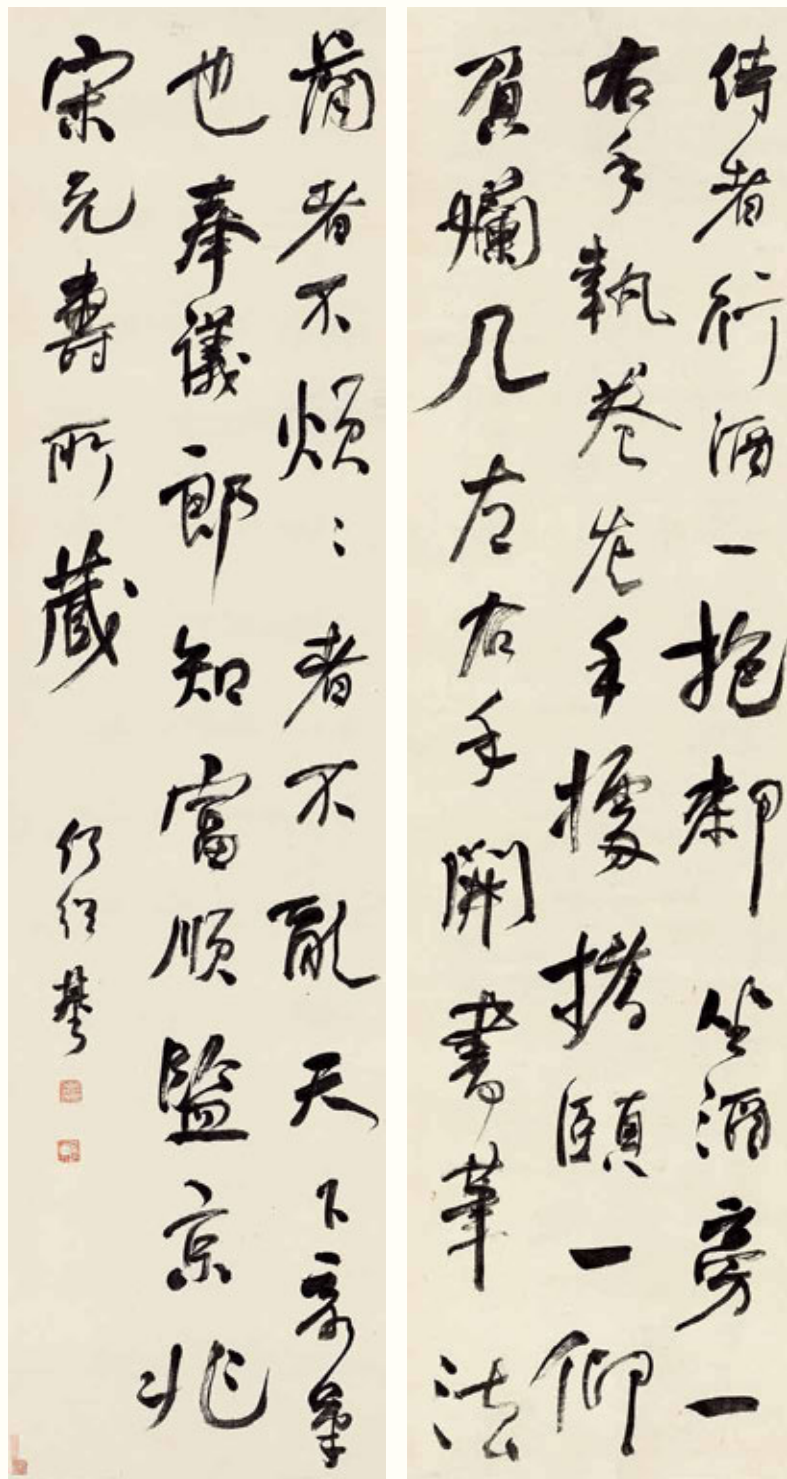 侍者行酒一抱厀坐酒旁一
右手執卷左手據搘頤一仰
負嬾几左右手開書筆法
簡者不煩〻者不亂天下奇筆
也奉議郎知富順監京兆
宋元壽所藏
何紹基